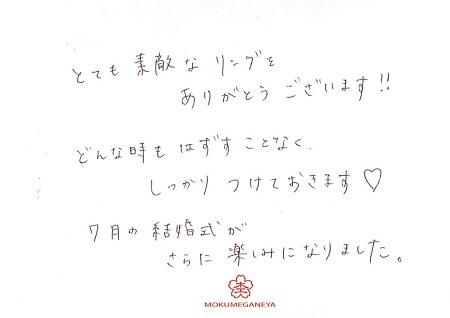 とても素敵なリングを
ありがとうございます!!
どんな時もはずすことなく、
しっかりつけておきます♡
7月の結婚式が
さらに楽しみになりました。
MOKUMEGANEYA